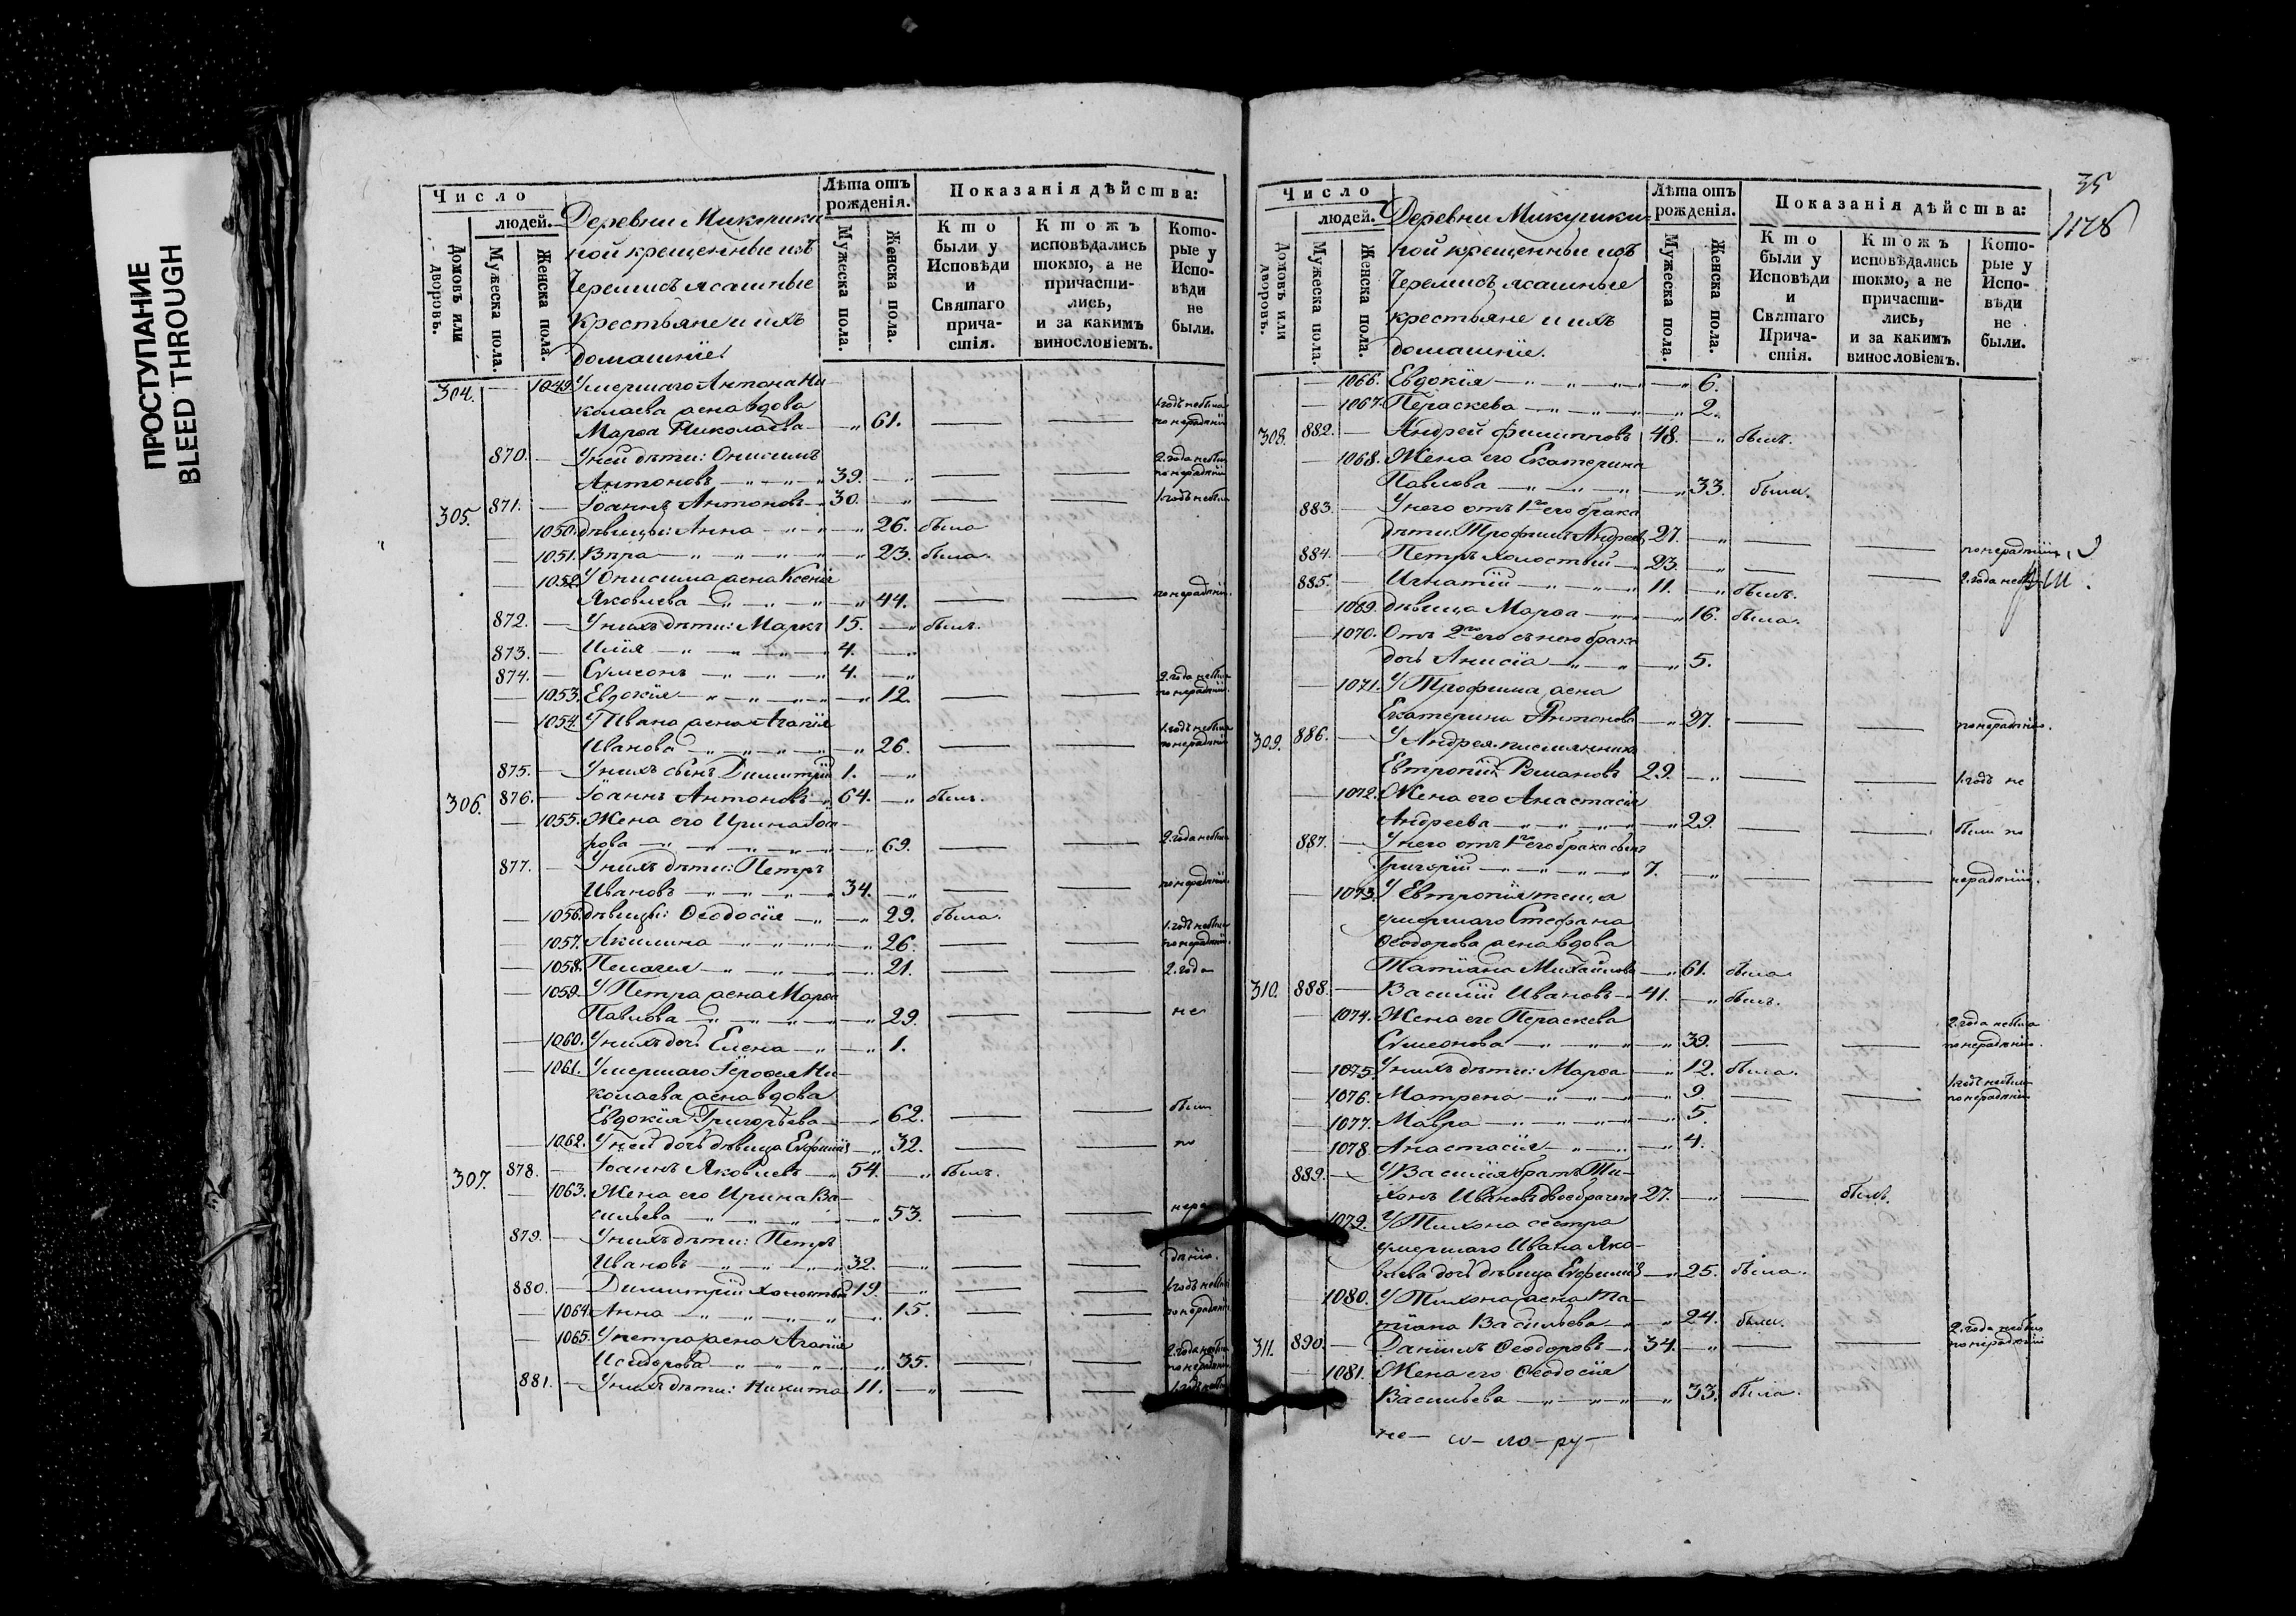 ПРОСТУПАНИЕ
BLEED THROUGH
Число
людей.
Домовъ или дворовъ.
Мужеска пола.
Женска пола.
Деревни Микушки
ной крещенные изъ
Черемисъ ясашные
крестьяне и ихъ
домашніе.
Лѣта отъ рожденія.
Мужеска пола.
Женска пола.
Показанія дѣйства:
Кто были у Исповѣди и Святаго причастія.
Ктожъ исповѣдались токмо, а не причастились, и за какимъ винословіемъ.
Которые у Исповѣди не были.
304. — 1049. Умершаго Антона Ни
колаева жена вдова 1. годъ небыла
Марѳа Николаева — 61. — — по нерадѣнію
870. — У ней дѣти: Онисимъ 2. года небылъ
Антоновъ 39. — — — по нерадѣнію
305. 871. — Іоаннъ Антоновъ 30. — — — 1. годъ небылъ
— 1050. дѣвицы: Анна — 26. была
— 1051. Вѣра — 23. была
— 1052. У Онисима жена Ксенія
Яковлева — 44. — — по нерадѣнію.
872. — У нихъ дѣти: Маркъ 15. — былъ.
873. — Илія 4. —
874. — Сѵмеонъ 4. — 2. года небыла
— 1053. Евдокія — 12. — — по нерадѣнію.
— 1054. У Ивана жена Агапія 1. годъ небыла
Иванова — 26. — — по нерадѣнію
875. — У нихъ сынъ Димитрій 1. —
306. 876. — Іоаннъ Антоновъ 64. — былъ.
— 1055. Жена его Ирина
рова — 69. — — 2. года небыла
877. — У нихъ дѣти: Петръ
Ивановъ 34. — — — по нерадѣнію.
— 1056. дѣвицы: Ѳеодосія — 29. была. 1. годъ небыла
— 1057. Акилина — 26. — — по нерадѣнію.
— 1058. Пелагея — 21. — — 2. года
— 1059. У Петра жена Марѳа
Павлова — 29. — — не
— 1060. У нихъ дочь Елена — 1.
— 1061. Умершаго Іероѳея Ни
колаева жена вдова
Евдокія Григорьева — 62. — — были
— 1062. У ней дочь дѣвица Евфимія — 32. — — по
307. 878. — Іоаннъ Яковлевъ 54. — былъ.
— 1063. Жена его Ирина Ва
сильева — 53. — — нера
879. — У нихъ дѣти: Петръ
Ивановъ 32. — — — дѣнію.
880. — Димитрій холостый 19. — — — 1. годъ небыли
— 1064. Анна — 15. — — по нерадѣнію
— 1065. У Петра жена Агапія 2. года небыла
Исидорова — 35. — — по нерадѣнію
881. — У нихъ дѣти: Никита 11. — — — 1. годъ небылъ
35
1128
Число
людей.
Домовъ или дворовъ.
Мужеска пола.
Женска пола.
Деревни Микушки
ной крещенные изъ
Черемисъ ясашные
крестьяне и ихъ
домашніе.
Лѣта отъ рожденія.
Мужеска пола.
Женска пола.
Показанія дѣйства:
Кто были у Исповѣди и Святаго Причастія.
Ктожъ исповѣдались токмо, а не причастились, и за какимъ винословіемъ.
Которые у Исповѣди не были.
— 1066. Евдокія — 6.
— 1067. Пераскева — 2.
308. 882. — Андрей Филипповъ 48. — былъ.
— 1068. Жена его Екатерина
Павлова — 33. была.
883. — У него отъ 1го его брака
дѣти: Трофимъ Андреевъ 27. — — —
884. — Петръ холостый 23. — — — по нерадѣнію
885. — Игнатій 11. — былъ. 2. года небыли
— 1069. дѣвица Марѳа — 16. была.
— 1070. Отъ 2го его съ нею брака
дочь Анисіа — 5.
— 1071. У Трофима жена
Екатерина Антонова — 27. — — по нерадѣнію.
309. 886. — У Андрея
Евтропій Романовъ 29. — — — 1. годъ не
— 1072. Жена его Анастасія
Андреева — 29. — — были по
887. — У него отъ 1го его брака сынъ
Григорій 7. — — — нерадѣнію.
— 1073. У Евтропія теща
умершаго Стефана
Ѳеодорова жена вдова
Татіана Михайлова — 61. была.
310. 888. — Василій Ивановъ 41. — былъ.
— 1074. Жена его Пераскева 2. года небыла
Сѵмеонова — 39. — — по нерадѣнію.
— 1075. У нихъ дѣти: Марѳа — 12. была. 1. годъ небыла
— 1076. Матрена — 9. — — по нерадѣнію
— 1077. Мавра — 5.
— 1078. Анастасія — 4.
889. — У Василія братъ Ти
хонъ Ивановъ двоебрачный 27. — — былъ.
1079. У Тихона сестра
умершаго Ивана Яко
влева дочь дѣвица Евфимія — 25. была.
1080. У Тихона жена Та
тіана Васильева — 24. была. 2. года небылъ
311. 890. — Даніилъ Ѳеодоровъ 34. — — — по нерадѣнію
1081. Жена его Ѳеодосія
Васильева — 33. была.